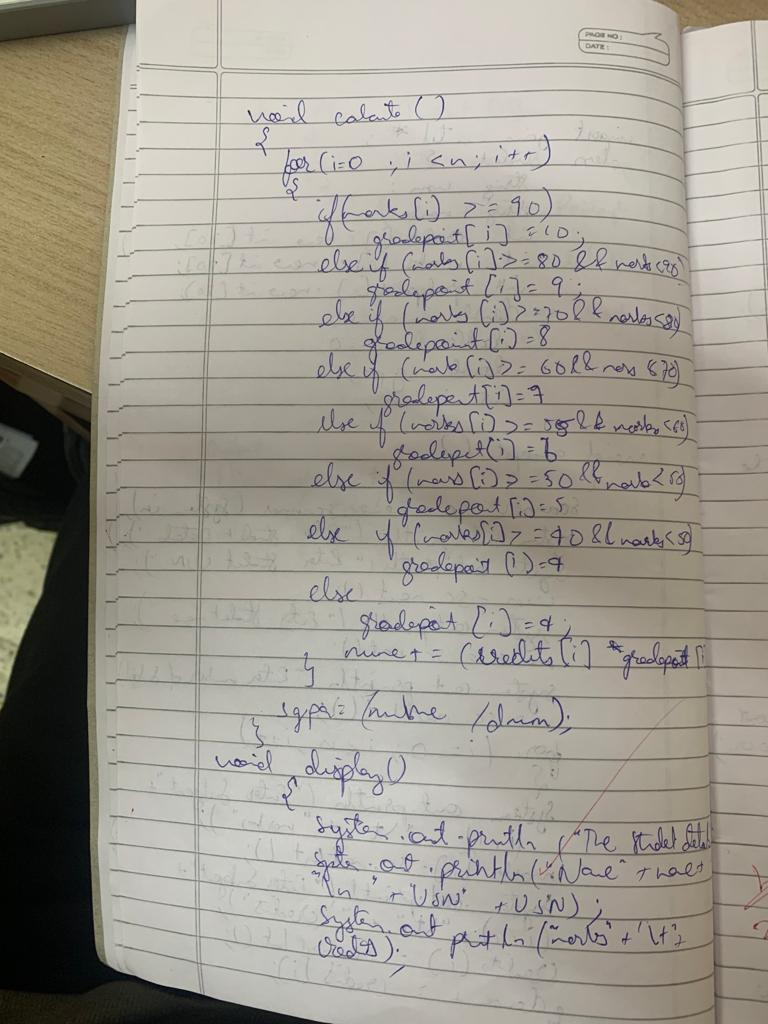 PAGE NO :
DATE :
void calcute ( )
{
for (i=0 ; i < n ; i++)
{
if (marks [i] >= 90)
gradepoint [ i ] = 10 ;
else if (marks [i] >= 80 && marks<90)
gradepoint [i] = 9 ;
else if (marks [i] >= 70 && marks<80)
gradepoint [i] = 8
else if (mark [i] >= 60 &&
gradepont [i] = 7
else if (marks [i] >= && marks<60)
gradepot [i] = 6
else if (mars [i] >= 50 && mark<
gradepont [i] = 5
else if (marks[i] >= 40 && marks<50)
gradepoit [i] = 4
else
gradepoit [i] = 4 ;
+ = (credits [i] * gradepoit [i
}
sgpa = /
}
void display ()
{
System . out . println ("The studet
System . out . println ( "Name" +
"\n " + "USN" + USN) ;
System . out println ("marks" + '\t' +
credits) ;